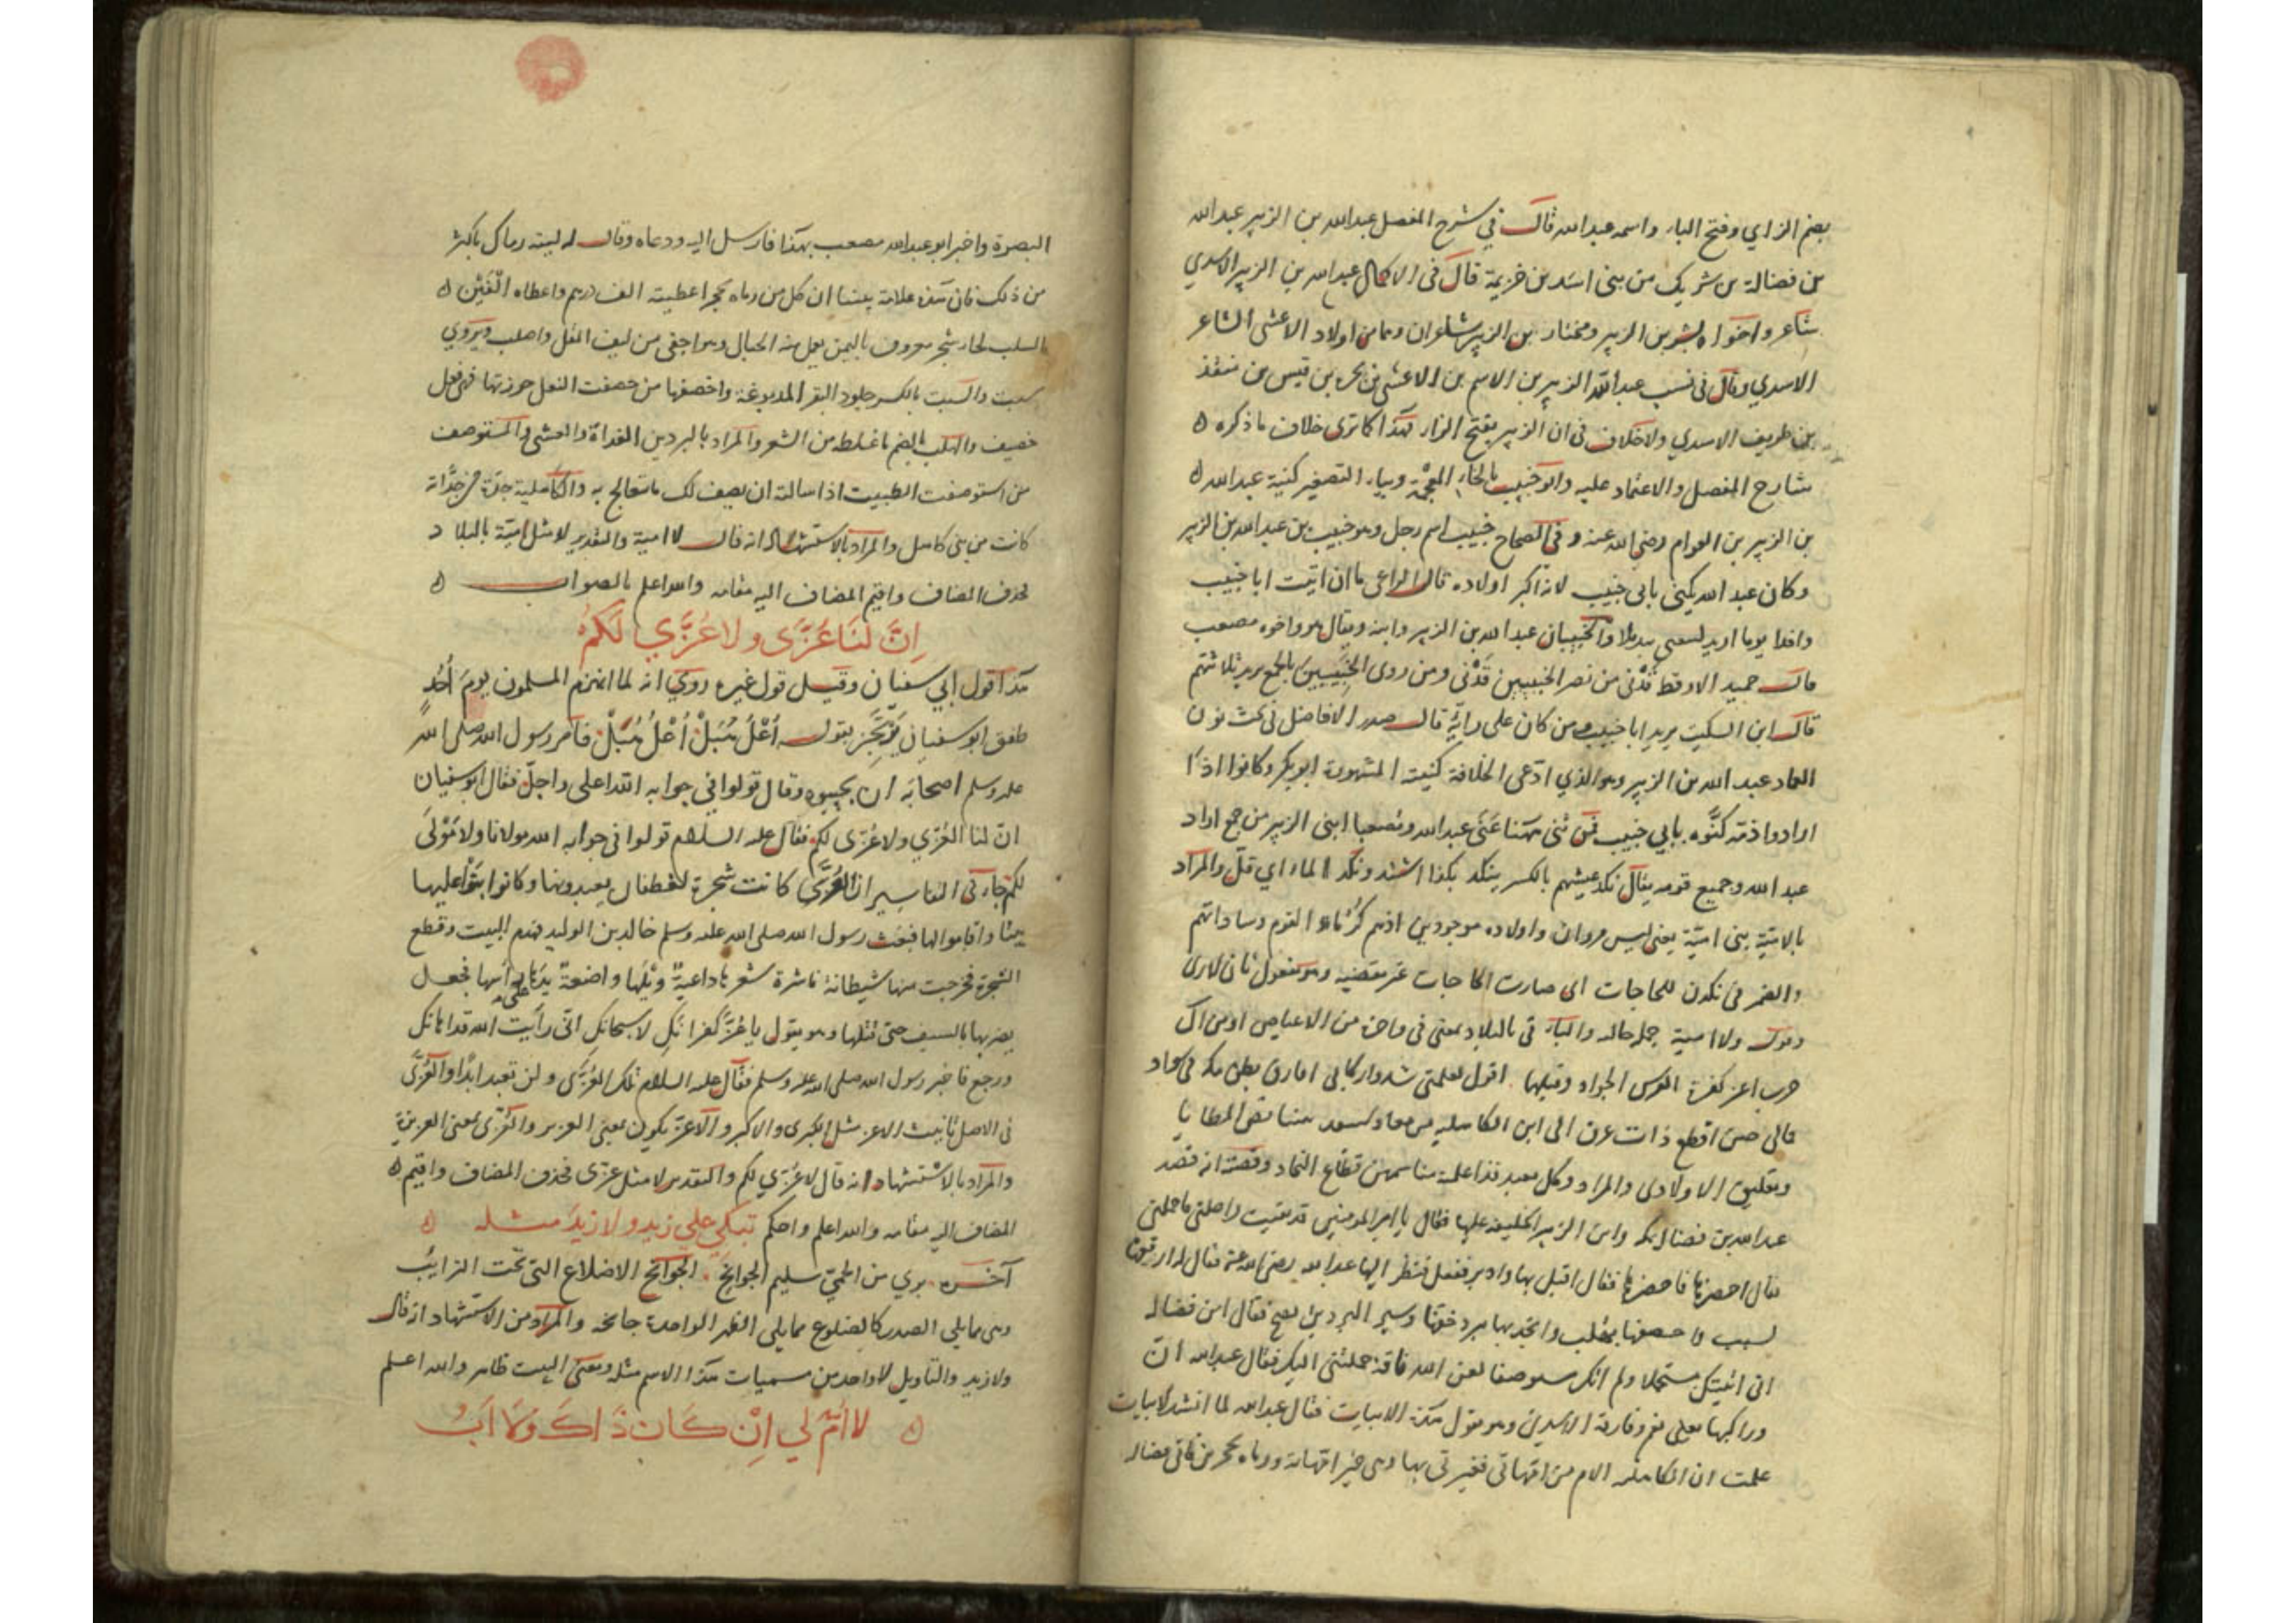 بضم الزاي وفتح الباء واسمه عبدالله قال في شرح المفصل عبدالله بن الزبير عبدالله
بن فضالة بن شريك من بنى اسد بن خزيمة قال فى الاكمال عبدالله بن الزبير الاسدي
شاعر واخواه بشر بن الزبير ومختار بن الزبير شاعران وهما من اولاد الاعشى الشاعر
الاسدي وقال فى نسب عبدالله الزبير بن الاسم بن الاعشى بن بحرة بن قيس بن منقذ
بن طريف الاسدي ولاخلاف فى ان الزبير بفتح الزاء هذا كما ترى خلاف ما ذكره
شارح المفصل والاعتماد عليه وابو خبيب بالخاء المعجمة وبياء التصغير كنية عبدالله
بن الزبير بن العوام رضى الله عنه وفي الصحاح خبيب اسم رجل وهو خبيب بن عبدالله بن الزبير
وكان عبد الله يكنى بابى خبيب لانه اكبر اولاده قال الراعى ما ان اتيت ابا خبيب
وافدا يوما اريد لبيعتى تبديلا والخبيبان عبدالله بن الزبير وابنه ويقال هو واخوه مصعب
قال حميد الارقط قدنى من نصر الخبيبين قدنى ومن روى الخبيبين بالجمع يريد ثلاثتهم
قال ابن السكيت يريد ابا خبيب ومن كان على رايه قال صدر الافاضل فى بحث نون
العماد عبد الله بن الزبير وهو الذي ادعى الخلافة كنيته المشهورة ابو بكر وكانوا اذا
ارادوا ذمه كنوه بابي خبيب فمن ثنى ههنا عنى عبدالله ومصعبا ابنى الزبير من جمع اراد
عبد الله وجميع قومه يقال نكد عيشهم بالكسر ينكد نكدا اشتد ونكد الماء اي قل والمراد
بالامية بنى امية يعنى ليس مروان واولاده موجودين اذهم كرماء القوم وساداتهم
والضمير فى نكدن للحاجات اى صارت الحاجات غير مقضية وهو مفعول ثان لارى
وقوله ولا امية جملة حالية والباء فى بالبلاد بمعنى فى واحدة من الاعياص او من ال
حرب اغر كغرة الفرس الجواد وقبلها اقول لغلمتى شدوا ركابى افارق بطن مكة فى سواد
فمالى حين اقطع ذات عرق الى ابن الكاهلية من معاد سيبعد بيننا نص المطايا
وتعليق الاداوى والمزاد وكل معبد قد اعلمته مناسمهن قطاع النجاد وقصته انه قصد
عبدالله بن فضالة مكة وابن الزبير الخليفة عليها فقال يا امير المومنين قد نقبت راحلتى
فقال احضرها فاحضرها فقال اقبل بها وادبر ففعل فنظر اليها عبدالله رضى الله عنه فقال له ارقعها
بسبت واخصفها بهلب وانجد بها يبرد خفها وسر البردين تصح فقال ابن فضالة
انى اتيتك مستحملا ولم آتك مستوصفا لعن الله ناقة حملتنى اليك فقال عبدالله ان
وراكبها فخرج وفارقه الاسدى وهو يقول هذه الابيات فقال عبدالله لما انشد الابيات
علمت ان الكاهلية الام من امهاتى فعيرنى بها وهى خير امهاته ورماه بحجر من فضالة
البصرة واخبر ابو عبدالله مصعب بهذا فارسل اليه ودعاه وقال له ليته رماك باكثر
من ذلك فان هذه علامة بيننا ان كل من رماه بحجر اعطيته الف درهم واعطاه الفين
السلب لحاء شجر معروف باليمن يعمل منه الحبال وهو اجفى من ليف المقل واصلب ويروي
سبت والسبت بالكسر جلود البقر المدبوغة واخصفها من خصفت النعل خرزتها فهى نعل
خصيف والهلب بالضم ما غلظ من الشعر والمراد بالبردين الغداة والعشى والمستوصف
من استوصفت الطبيب اذا سالته ان يصف لك ما تتعالج به والكاهلية جدة من جداته
كانت من بنى كاهل والمراد بالاستشهاد انه قال لا امية والتقدير لا مثل امية بالبلاد
فحذف المضاف واقيم المضاف اليه مقامه والله اعلم بالصواب
اِنَّ لَنَا عُزَّى ولا عُزَّي لَكُمُ
هذا قول ابي سفيان وقيل قول غيره روي انه لما انهزم المسلمون يومَ اُحُدٍ
طفق ابو سفيان يَرْتَجِز يقول اُعْلُ هُبَلْ اُعْلُ هُبَلْ فامر رسول الله صلى الله
عليه وسلم اصحابَه ان يجيبوه وقال قولوا في جوابه الله اعلى واجلّ فقال ابو سفيان
انّ لنا العُزّي ولا عُزّى لكم فقال عليه السلام قولوا فى جوابه الله مولانا ولا مَوْلَى
لكم جاء فى التفاسير ان العُزَّى كانت شجرة لغطفان يعبدونها وكانوا بنوا عليها
بيتا واقاموا لها فبعث رسول الله صلى الله عليه وسلم خالد بن الوليد فهدم البيت وقطع
الشجرة فخرجت منها شيطانة ناشرة شعرها داعيةً ويْلَها واضعةً يدَها على رأسها فجعل
يضربها بالسيف حتى قتلها وهو يقول يا عُزَّ كُفرانَكِ لا سبحانكِ انّى رأيت الله قد اهانك
ورجع فاخبر رسول الله صلى الله عليه وسلم فقال عليه السلام تلك العُزّى ولن تعبد ابدًا والعُزّى
فى الاصل تانيث الاعز مثل الكبرى والاكبر والاعز يكون بمعنى العزيز والعُزّى بمعنى العزيزة
والمراد بالاستشهاد انه قال لا عُزّي لكم والتقدير لا مثل عزى فحذف المضاف واقيم
المضاف اليه مقامه والله اعلم واحكم تبكي على زيدٍ ولا زيدَ مثله
آخره بري من الحمّي سليم الجوانح الجوانح الاضلاع التى تحت الترايب
وهى مما يلى الصدر كالضلوع مما يلى الظهر الواحدة جانحة والمراد من الاستشهاد انه قال
ولا زيد والتاويل لا واحد من مسميات هذا الاسم مثله ومعنى البيت ظاهر والله اعلم
لا اُمَّ لي اِنْ كَانَ ذَاكَ وَلَا اَبُ